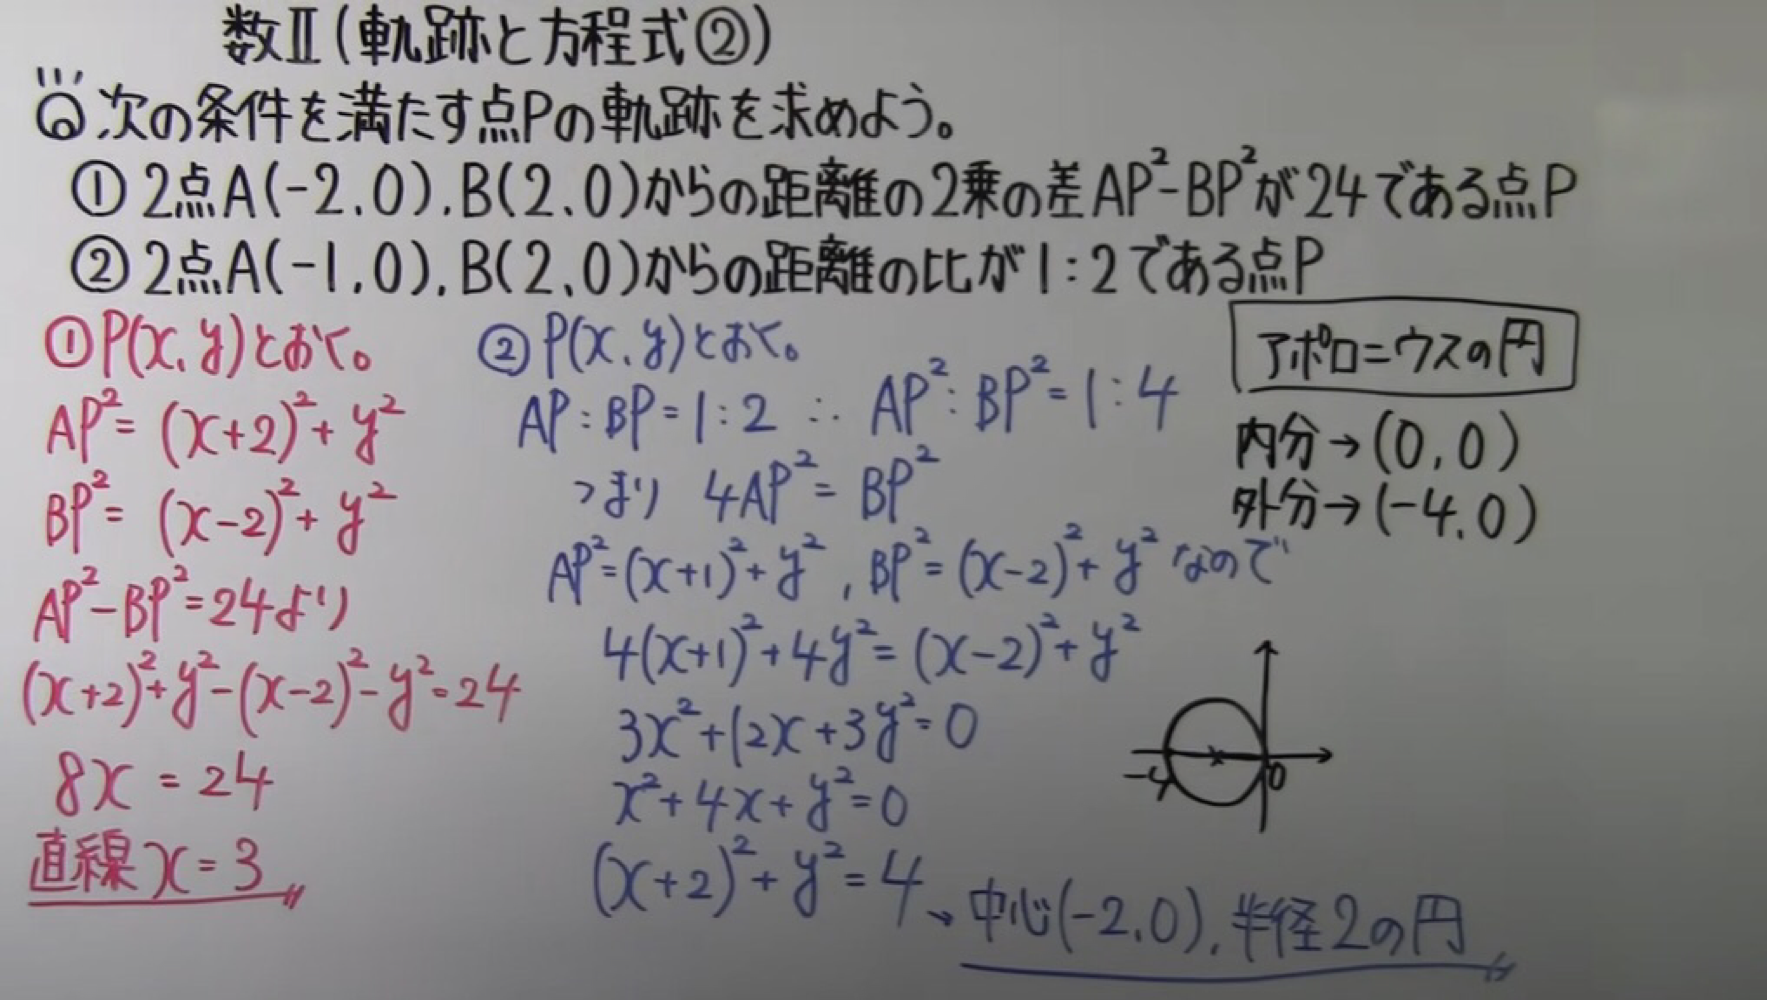 数Ⅱ(軌跡と方程式②)
Q.次の条件を満たす点Pの軌跡を求めよう。
① 2点A(-2,0),B(2,0)からの距離の2乗の差AP²-BP²が24である点P
② 2点A(-1,0),B(2,0)からの距離の比が1:2である点P
①P(x,y)とおく。
AP²=(x+2)²+y²
BP²=(x-2)²+y²
AP²-BP²=24より
(x+2)²+y²-(x-2)²-y²=24
8x=24
直線x=3
②P(x,y)とおく。
AP:BP=1:2 ∴ AP²:BP²=1:4
つまり 4AP²=BP²
AP²=(x+1)²+y², BP²=(x-2)²+y²なので
4(x+1)²+4y²=(x-2)²+y²
3x²+12x+3y²=0
x²+4x+y²=0
(x+2)²+y²=4
→中心(-2,0),半径2の円
アポロニウスの円
内分→(0,0)
外分→(-4,0)
-4 0